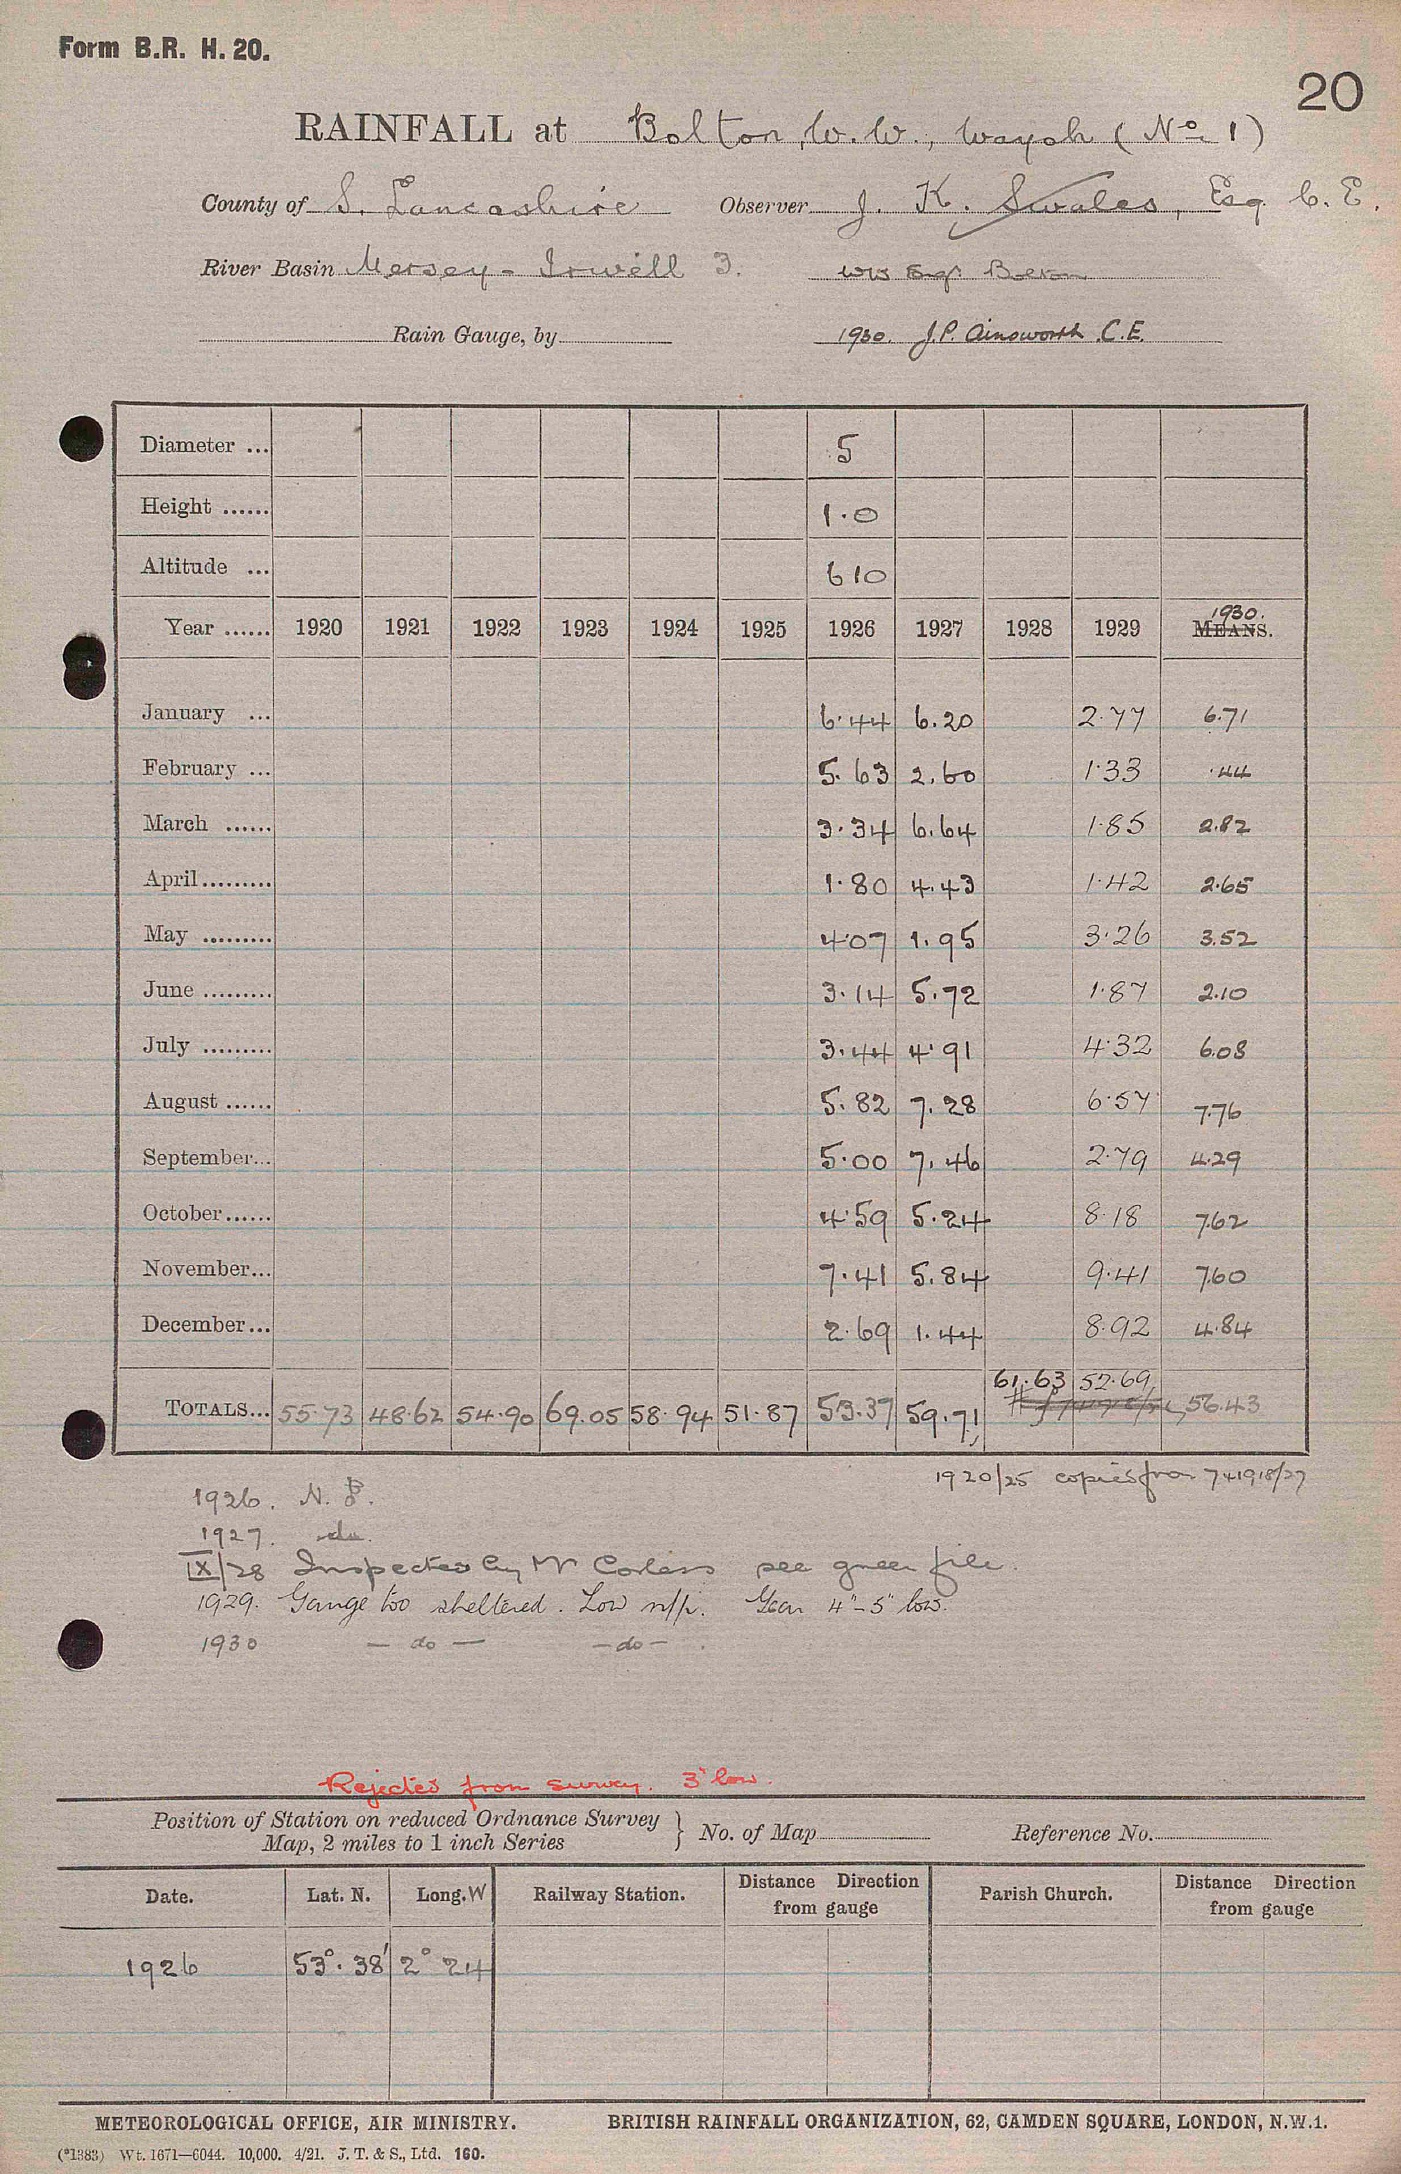 Form B.R. H. 20.
20
RAINFALL at Bolton, W.W., Wayoh (No. 1)
County of S. Lancashire Observer J. K. Swales, Esq. C.E.
River Basin Mersey - Irwell 3. WW Engr Bolton
Rain Gauge, by 1930. J.P. Ainsworth C.E.
Diameter ... 5
Height ...... 1.0
Altitude ... 610
Year ...... 1920 1921 1922 1923 1924 1925 1926 1927 1928 1929 1930. MEANS.
January ... 6.44 6.20 2.77 6.71
February ... 5.63 2.60 1.33 .44
March ...... 3.34 6.64 1.85 2.82
April ......... 1.80 4.43 1.42 2.65
May ......... 4.07 1.95 3.26 3.52
June ......... 3.14 5.72 1.87 2.10
July ......... 3.44 4.91 4.32 6.08
August ...... 5.82 7.28 6.57 7.76
September... 5.00 7.46 2.79 4.29
October ...... 4.59 5.24 8.18 7.62
November... 7.41 5.84 9.41 7.60
December ... 2.69 1.44 8.92 4.84
61.63 52.69
TOTALS... 55.73 48.62 54.90 69.05 58.94 51.87 53.37 59.71 56.43
1920/25 copied from 741918/27
1926. N.
1927. do.
IX/28 Inspected by Mr Corless see green file.
1929. Gauge too sheltered. Low n/p. Year 4"-5" low.
1930 — do — — do — .
Rejected from survey. 3" low.
Position of Station on reduced Ordnance Survey
Map, 2 miles to 1 inch Series } No. of Map Reference No.
Date. Lat. N. Long. W Railway Station. Distance Direction from gauge Parish Church. Distance Direction from gauge
1926 53°. 38' 2° 24
METEOROLOGICAL OFFICE, AIR MINISTRY. BRITISH RAINFALL ORGANIZATION, 62, CAMDEN SQUARE, LONDON, N.W.1.
(*1383) Wt. 1671—6044. 10,000. 4/21. J. T. & S., Ltd. 160.